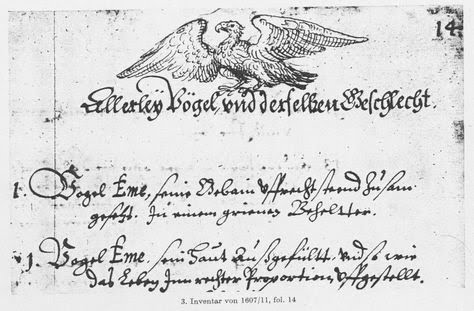 14.
Allerley Vögel, vnd derselben Geschlecht.
1. Vogel Eme, seine Gebain vffrecht steend zusam
gesetzt. In einem grienen Beheltter.
1. Vogel Eme, sein haut außgefültt vnd so wie
das Leben Inn rechter Proportion vffgestellt.
3. Inventar von 1607/11, fol. 14